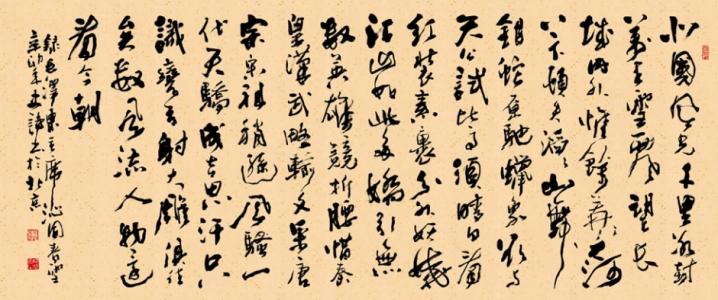 北國風光千里冰封
萬里雪飄望長
城内外惟餘莽莽大河
上下頓失滔滔山舞
銀蛇原馳蠟象欲與
天公試比高須晴日看
紅裝素裹分外妖嬈
江山如此多嬌引無
數英雄競折腰惜秦
皇漢武略輸文采唐
宗宋祖稍遜風騷一
代天驕成吉思汗只
識彎弓射大雕俱往
矣數風流人物還
看今朝
錄毛澤東主席沁園春雪
辛卯年於北京